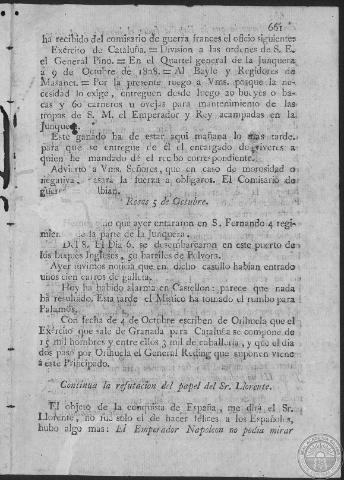 661
ha recibido del comisario de guerra frances el oficio siguientes
Exército de Cataluña. = Division a las ordenes de S. E.
el General Pino. = En el Quartel general de la Junquera
a 9 de Octubre de 1808. = Al Bayle y Regidores de
Masanet. = Por la presente ruego a Vms. porque la ne-
cesidad lo exige, entreguen desde luego 20 bueyes o ba-
cas y 60 carneros u ovejas para mantenimiento de las
tropas de S. M. el Emperador y Rey acampadas en la
Junquera
Este ganado ha de estar aqui mañana lo mas tarde,
para que se entregue de él el encargado de viveres a
quien he mandado dé el recibo correspondiente.
Advierto a Vms. Señores, que en caso de morosidad o
negativa, la fuerza a obligaros. El Comisario de
Rosas 5 de Octubre.
no que ayer entararon en S. Fernando 4 regi-
mien de la parte de la Junquera.
D. 18. El Dia 6. se desembarcaron en este puerto de
los buques Ingleses, 90 barriles de Polvora.
Ayer tuvimos noticia que en dicho castillo habian entrado
unos cien carros de galleta.
Hoy ha habido alarma en Castellon: parece que nada
ha resultado. Esta tarde el Mistico ha tomado el rumbo para
Palamós.
Con fecha de 4 de Octubre escriben de Orihuela que el
Exército que sale de Granada para Cataluña se compone de
15 mil hombres y entre ellos 3 mil de caballeria, y que el dia
dos pasó por Orihuela el General Reding que suponen viene
a este Principado.
Continua la refutacion del papel del Sr. Llorente.
El objeto de la conquista de España, me dirá el Sr.
Llorente, no fue solo el de hacer felices a los Españoles,
hubo algo mas: El Emperador Napoleon no podia mirar